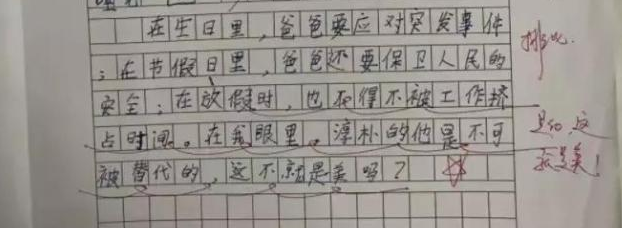 在生日里，爸爸要应对突发事件
；在节假日里，爸爸还要保卫人民的
安全；在放假时，也不得不被工作挤
占时间。在我眼里。淳朴的他是不可
被替代的，这不就是美吗？
排比
是的，这
就是美！